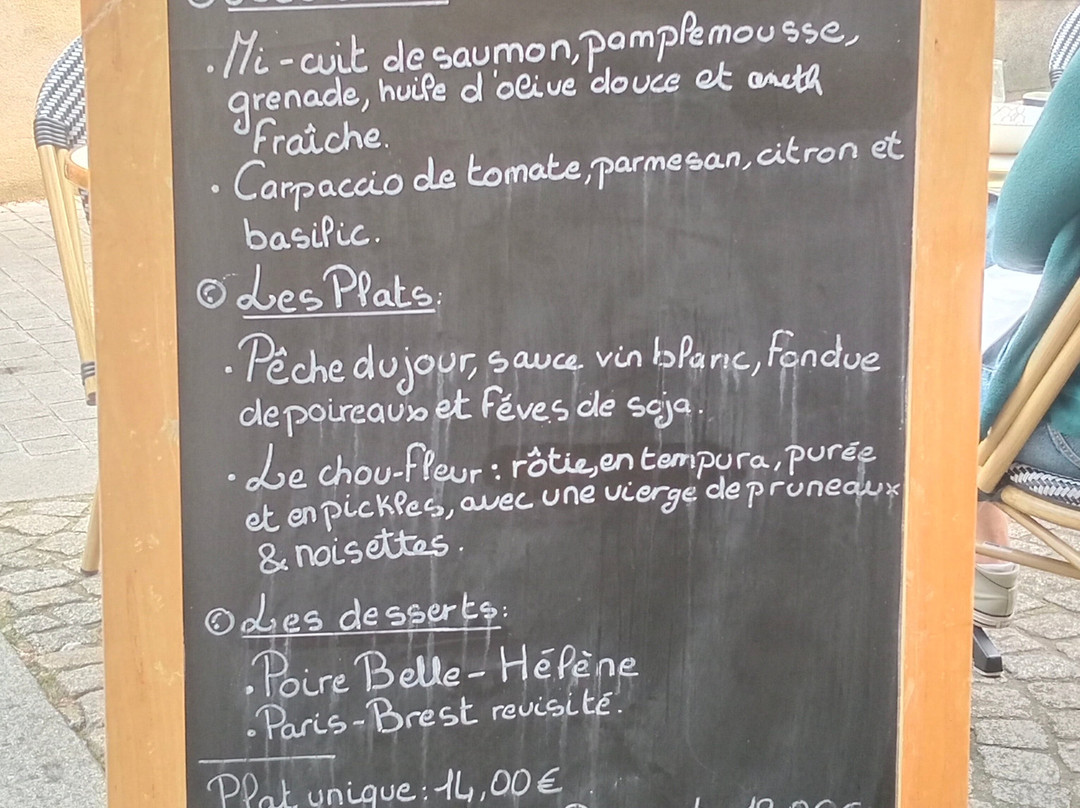 · Mi-cuit de saumon, pamplemousse,
grenade, huile d'olive douce et aneth
fraîche.
· Carpaccio de tomate, parmesan, citron et
basilic.
Les Plats:
· Pêche du jour, sauce vin blanc, fondue
de poireaux et féves de soja.
· Le chou-fleur: rôtie, en tempura, purée
et en pickles, avec une vierge de pruneaux
& noisettes.
Les desserts:
· Poire Belle-Hélène
· Paris-Brest revisité.
Plat unique: 14,00€